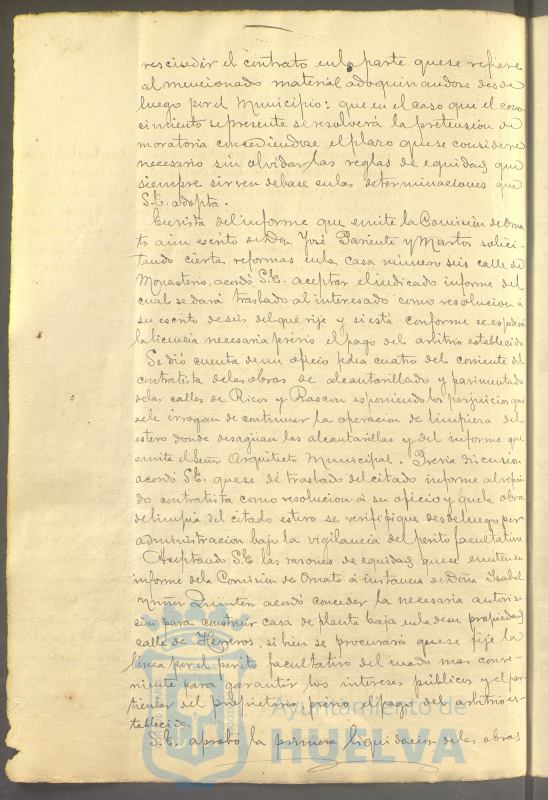 rescindir el contrato en la parte que se refiere
al mencionado material adoquinandose desde
luego por el Municipio: que en el caso que el cono
cimiento se presente se resolverá la pretension de
moratoria concediendose el plazo que se considere
necesario sin olvidar las reglas de equidad que
siempre sirven de base en las determinaciones que
S.E. adopta.
En vista del informe que emite la Comisión de Orna
to a un escrito de Don José Pariente y Martos solici-
tando ciertas reformas en la casa número seis calle de
Monasterio, acordó S.E. aceptar el indicado informe del
cual se dará traslado al interesado como resolucion á
su escrito de seis del que rije y si está conforme se expedirá
la licencia necesaria previo el pago del arbitrio establecido
Se dió cuenta de un oficio fecha cuatro del corriente del
contratista de las obras de alcantarillado y pavimentado
de las calles de Ricos y Rascon exponiendo los perjuicios que
se le irrogan de continuar la operacion de limpieza del
estero donde desaguan las alcantarillas y del informe que
emite el Señor Arquitecto Municipal. Previa discusion
acordó S.E. que se dé traslado del citado informe al referi
do contratista como resolucion á su oficio y que la obra
de limpia del citado estero se verifique desde luego por
administracion bajo la vigilancia del perito facultativo
Aceptando S.E. las razones de equidad que se emiten en
informe de la Comision de Ornato á instancia de Doña Isabel
Muñoz Quintero acordó conceder la necesaria autoriza
cion para construir casa de planta baja en la de su propiedad
calle de Herreros, si bien se procurará que se fije la
linea por el perito facultativo del modo mas conve-
niente para garantir los intereses públicos y el par
ticular del propietario previo el pago del arbitrio es-
tablecido.
S.E. aprobó la primera liquidacion de las obras
Ayuntamiento de
HUELVA